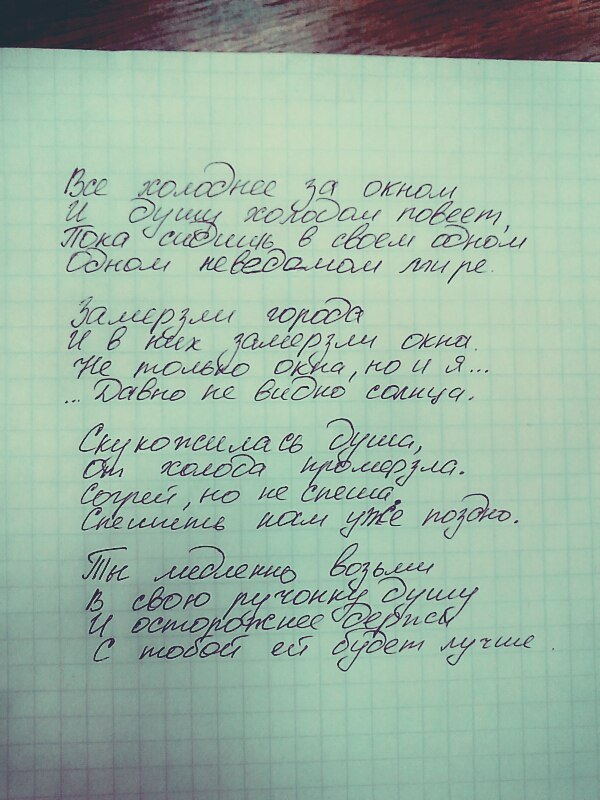 Все холоднее за окном
И душу холодом повеет,
Пока сидишь в своем одном
Одном неведомом мире.
Замерзли города
И в них замерзли окна.
Не только окна, но и я...
... Давно не видно солнца.
Скукожилась душа,
От холода промерзла.
Согрей, но не спеша,
Спешить нам уже поздно.
Ты медленно возьми
В свою ручонку душу
И осторожнее держи
С тобой ей будет лучше.